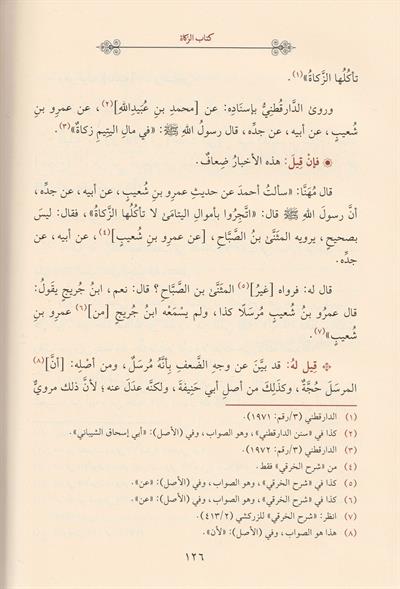 كتاب الزكاة
تأكُلُها الزَّكاةُ»(١).
وروىٰ الدَّارقطنِيُّ بإستادِه: عن [محمدِ بنِ عُبَيدِاللهِ](٢)، عن عمرِو بنِ
شُعيبٍ، عن أبيه، عن جدِّه، قال رسولُ اللهِ ﷺ: «في مالِ اليتيمِ زكاةٌ»(٣).
فإنْ قِيلَ: هذه الأخبارُ ضِعافٌ.
قال مُهَنَّا: «سألتُ أحمدَ عن حديثِ عمرِو بنِ شُعَيبٍ، عن أبيه، عن جدِّه،
أنَّ رسولَ اللهِ ﷺ قال: «اتَّجِرُوا بأموالِ اليتامَىٰ لا تأكُلُها الزَّكاةُ»، فقال: ليسَ
بصحيحٍ، يرويه المثنَّىٰ بنُ الصَّبَّاحِ، [عن عمرِو بنِ شُعَيبٍ](٤)، عن أبيه، عن
جدِّه.
قال له: فرواه [غيرُ](٥) المثنَّىٰ بنِ الصَّبَّاحِ؟ قال: نعم، ابنُ جُريجٍ يقولُ:
قال عمرُو بنُ شُعيبٍ مُرسَلًا كذا، ولم يسمَعْه ابنُ جُريجٍ [من](٦) عمرِو بنِ
شُعيبٍ»(٧).
قِيلَ لهُ: قد بيَّنَ عن وجهِ الضَّعفِ بأنَّهُ مُرسَلٌ، ومن أصلِه: [أنَّ](٨)
المرسَلَ حُجَّةٌ، وكذَلِكَ من أصلِ أبي حَنِيفةَ، ولكنَّه عدَلَ عنه؛ لأنَّ ذلك مرويٌّ
(١) الدارقطني (٣/رقم: ١٩٧١).
(٢) كذا في «سنن الدارقطني»، وهو الصواب، وفي (الأصل): «أبي إسحاق الشيباني».
(٣) الدارقطني (٣/رقم: ١٩٧٢).
(٤) من «شرح الخرقي» فقط.
(٥) كذا في «شرح الخرقي»، وهو الصواب، وفي (الأصل): «عن».
(٦) كذا في «شرح الخرقي»، وهو الصواب، وفي (الأصل): «عن».
(٧) انظر: «شرح الخرقي» للزركشي (٤١٣/٢).
(٨) هذا هو الصواب، وفي (الأصل): «لأن».
١٢٦